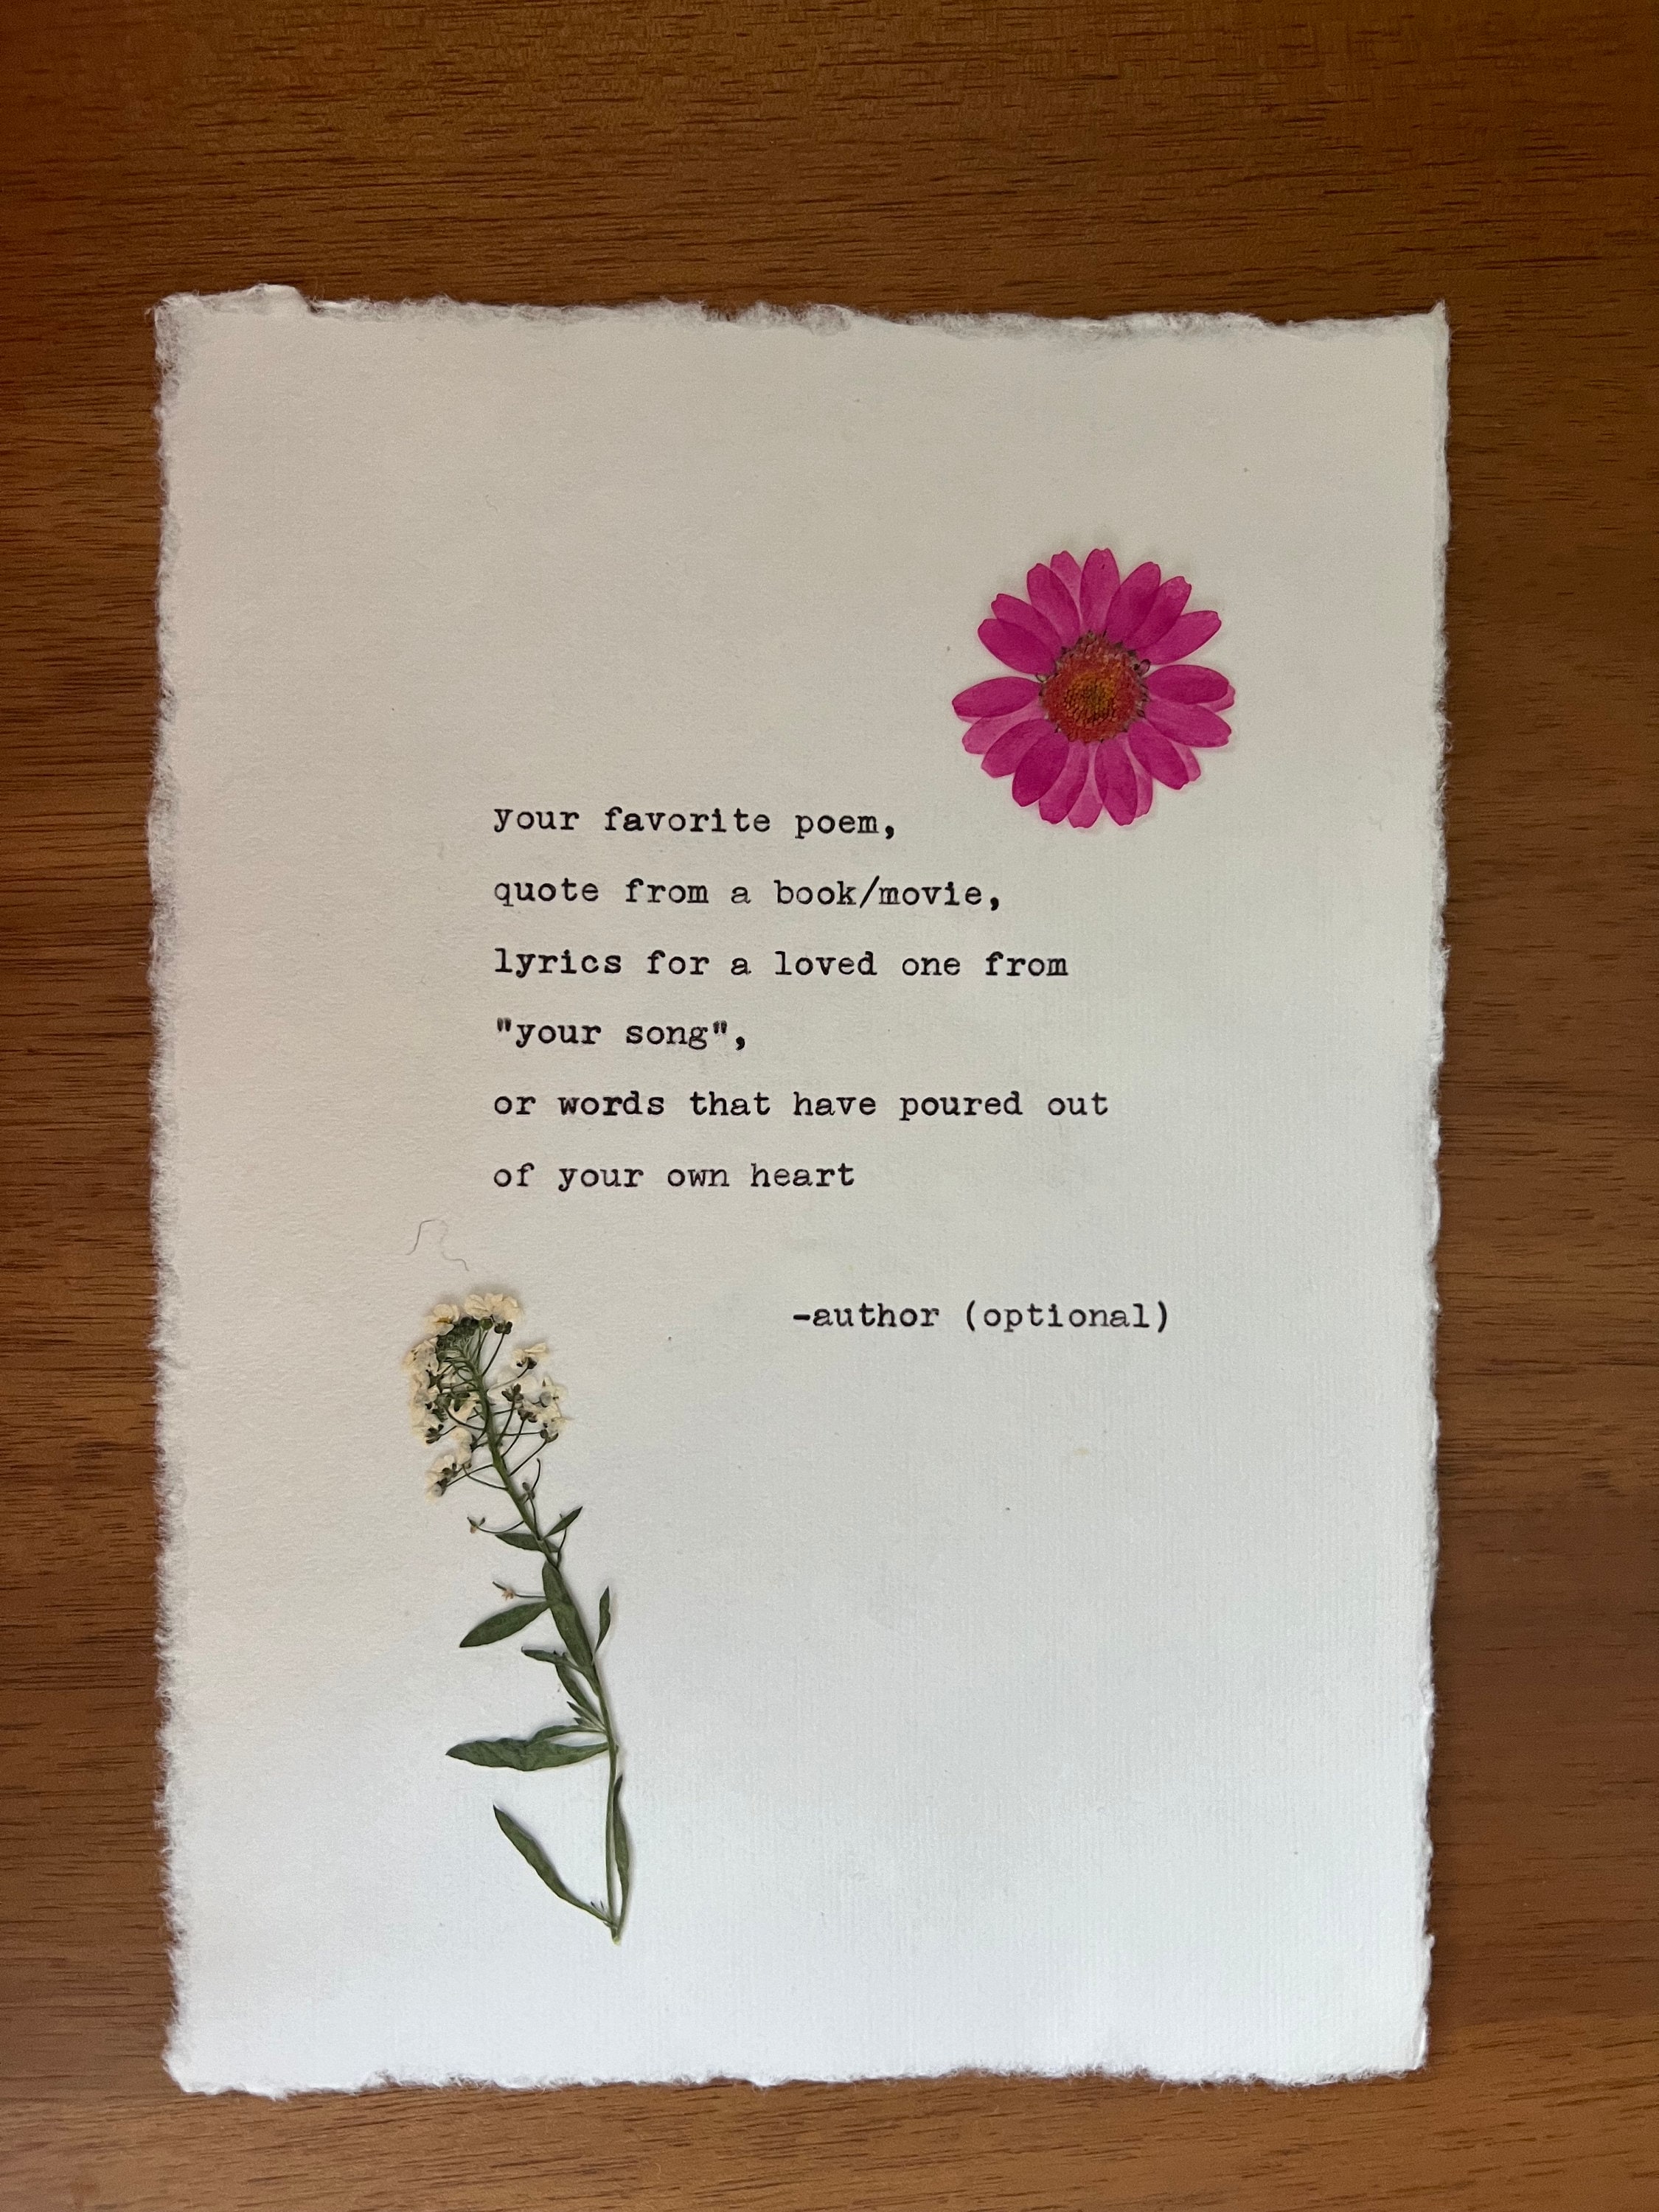 your favorite poem,
quote from a book/movie,
lyrics for a loved one from
"your song",
or words that have poured out
of your own heart
-author (optional)